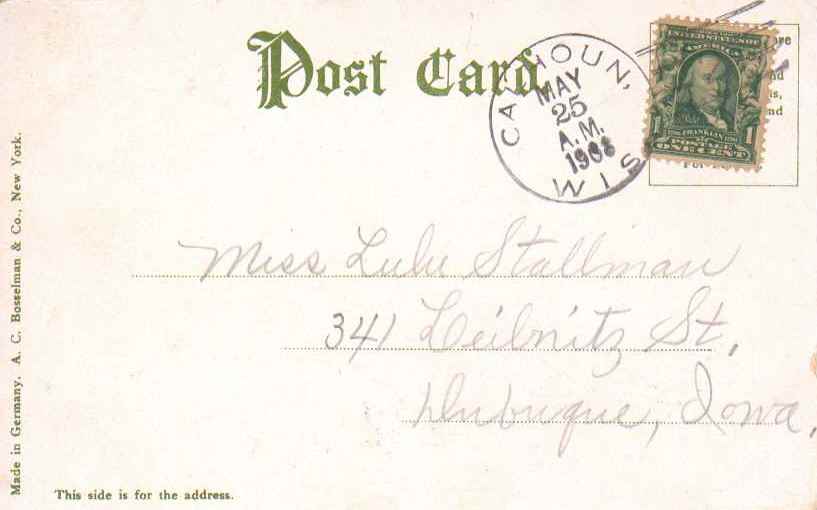 Post Card.
CALHOUN, WIS
MAY
25
A.M.
1908
UNITED STATES OF
AMERICA
FRANKLIN
1 1
POSTAGE
ONE CENT
Miss Lulu Stallman
341 Leibnitz St,
Dubuque, Iowa,
This side is for the address.
Made in Germany. A. C. Bosselman & Co., New York.